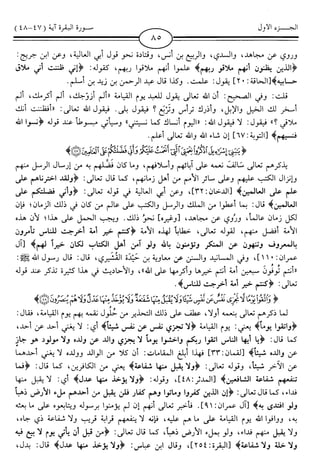 الجـــزء الأول
سـورة البقـرة آية (٤٧-٤٨)
٨٥
وروي عن مجاهد، والسدي، والربيع بن أنس، وقتادة نحو قول أبي العالية، وعن ابن جريج:
﴿الذين يظنون أنهم ملاقوا ربهم﴾ علموا أنهم ملاقوا ربهم، كقوله: ﴿إني ظننت أني ملاق
حسابيه﴾[الحاقة: ٢٠] يقول: علمت. وكذا قال عبد الرحمن بن زيد بن أسلم.
قلت: وفي الصحيح: أن الله تعالى يقول للعبد يوم القيامة «ألم أزوجك، ألم أكرمك، ألم
أسخر لك الخيل والإبل، وأذرك ترأس وتربع ؟ فيقول بلى. فيقول الله تعالى: «أفظننت أنك
ملاقي ؟» فيقول: لا فيقول الله: «اليوم أنساك كما نسيتني» وسيأتي مبسطاً عند قوله ﴿نسوا الله
فنسيهم﴾ [التوبة: ٦٧] إن شاء الله والله تعالى أعلم.
يذكرهم تعالى سالف نعمه على آبائهم وأسلافهم، وما كان فضلهم به من إرسال الرسل منهم
وإنزال الكتب عليهم وعلى سائر الأمم من أهل زمانهم، كما قال تعالى: ﴿ولقد اخترناهم على
علم على العالمين﴾ [الدخان: ٣٢]، وعن أبي العالية في قوله تعالى: ﴿وأني فضلتكم على
العالمين﴾ قال: بما أعطوا من الملك والرسل والكتب على عالم من كان في ذلك الزمان؛ فإن
لكل زمان عالماً، وروي عن مجاهد، [وغيره] نحو ذلك. ويجب الحمل على هذا؛ لأن هذه
الأمة أفضل منهم، لقوله تعالى، خطاباً لهذه الأمة ﴿كنتم خير أمة أخرجت للناس تأمرون
بالمعروف وتنهون عن المنكر وتؤمنون بالله ولو آمن أهل الكتاب لكان خيراً لهم﴾ [آل
عمران: ١١٠]، وفي المسانيد والسنن عن معاوية بن حيدة القشيري، قال: قال رسول الله ﷺ:
«أنتم توفون سبعين أمة أنتم خيرها وأكرمها على الله»، والأحاديث في هذا كثيرة تذكر عند قوله
تعالى: ﴿كنتم خير أمة أخرجت للناس﴾.
لما ذكرهم تعالى بنعمه أولاً، عطف على ذلك التحذير من حلول نقمه بهم يوم القيامة، فقال:
﴿واتقوا يوماً﴾ يعني: يوم القيامة ﴿لا تجزي نفس عن نفس شيئاً﴾ أي: لا يغني أحد عن أحد،
كما قال: ﴿يا أيها الناس اتقوا ربكم واخشوا يوماً لا يجزي والد عن ولده ولا مولود هو جاز
عن والده شيئاً﴾ [لقمان: ٣٣] فهذا أبلغ المقامات: أن كلا من الوالد وولده لا يغني أحدهما
عن الآخر شيئاً، وقوله تعالى: ﴿ولا يقبل منها شفاعة﴾ يعني من الكافرين، كما قال: ﴿فما
تنفعهم شفاعة الشافعين﴾ [المدثر: ٤٨]، وقوله: ﴿ولا يؤخذ منها عدل﴾ أي: لا يقبل منها
فداء، كما قال تعالى: ﴿إن الذين كفروا وماتوا وهم كفار فلن يقبل من أحدهم ملء الأرض ذهباً
ولو افتدى به﴾ [آل عمران: ٩١]. فأخبر تعالى أنهم إن لم يؤمنوا برسوله ويتابعوه على ما بعثه
به، ووافوا الله يوم القيامة على ما هم عليه، فإنه لا ينفعهم قرابة قريب ولا شفاعة ذي جاه،
ولا يقبل منهم فداء، ولو بملء الأرض ذهباً، كما قال تعالى: ﴿من قبل أن يأتي يوم لا بيع فيه
ولا خلة ولا شفاعة﴾ [البقرة: ٢٥٤]، وقال ابن عباس: ﴿ولا يؤخذ منها عدل﴾ قال: بدل،